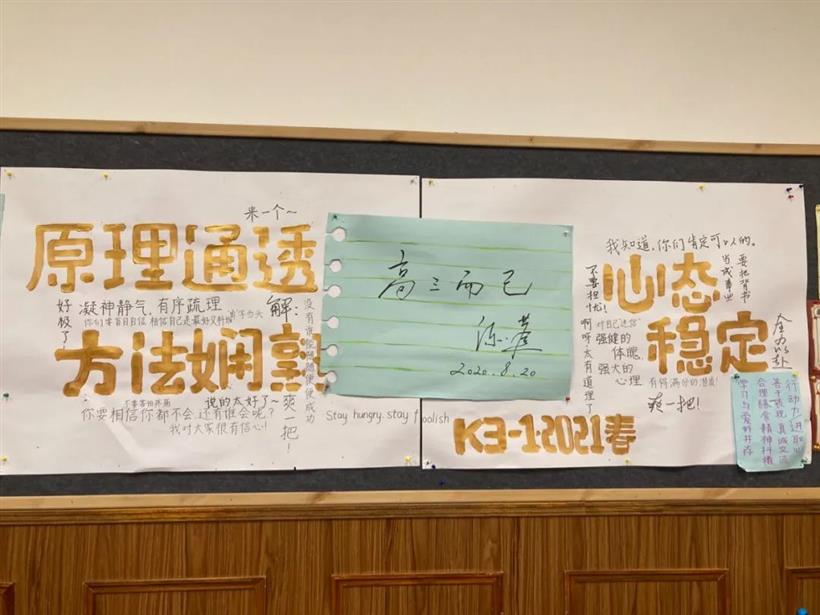 来一个~
原理通透
好极了!
凝神静气,有序疏理
解:
方法娴熟
没有谁能随随便便成功
说的太好了~
爽一把!
你要相信你都不会还有谁会呢?
我对大家很有信心!
Stay hungry. stay foolish
高三而已
2020.8.20
我知道,你们肯定可以的。
不要担忧!
心态
稳定
要把背书
当成事业
全力以赴
啊呀太有道理了
对自己进信
强健的
体魄
强大的
心理
有得满分的潜质!
爽一把!
K3-1 2021春
行动力进取心
善于表现真诚交流
合理膳食精神抖擞
学习与爱好并存